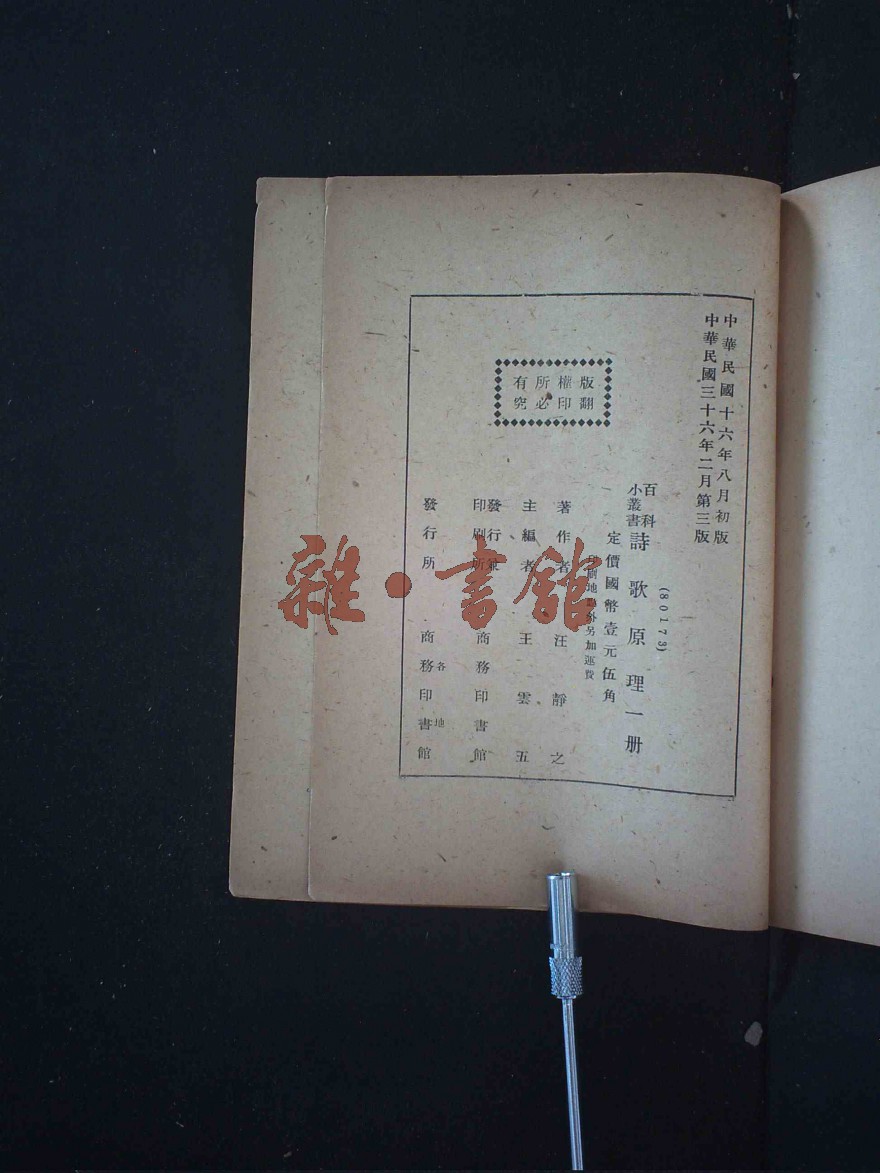 中華民國十六年八月初版
中華民國三十六年二月第三版
(80173)
百科小叢書
詩歌原理一册
定價國幣壹元伍角
印刷地點外另加運費
版權所有
翻印必究
著作者 汪靜之
主編者 王雲五
發行兼印刷所 商務印書館
發行所 各地商務印書館
雜·書館